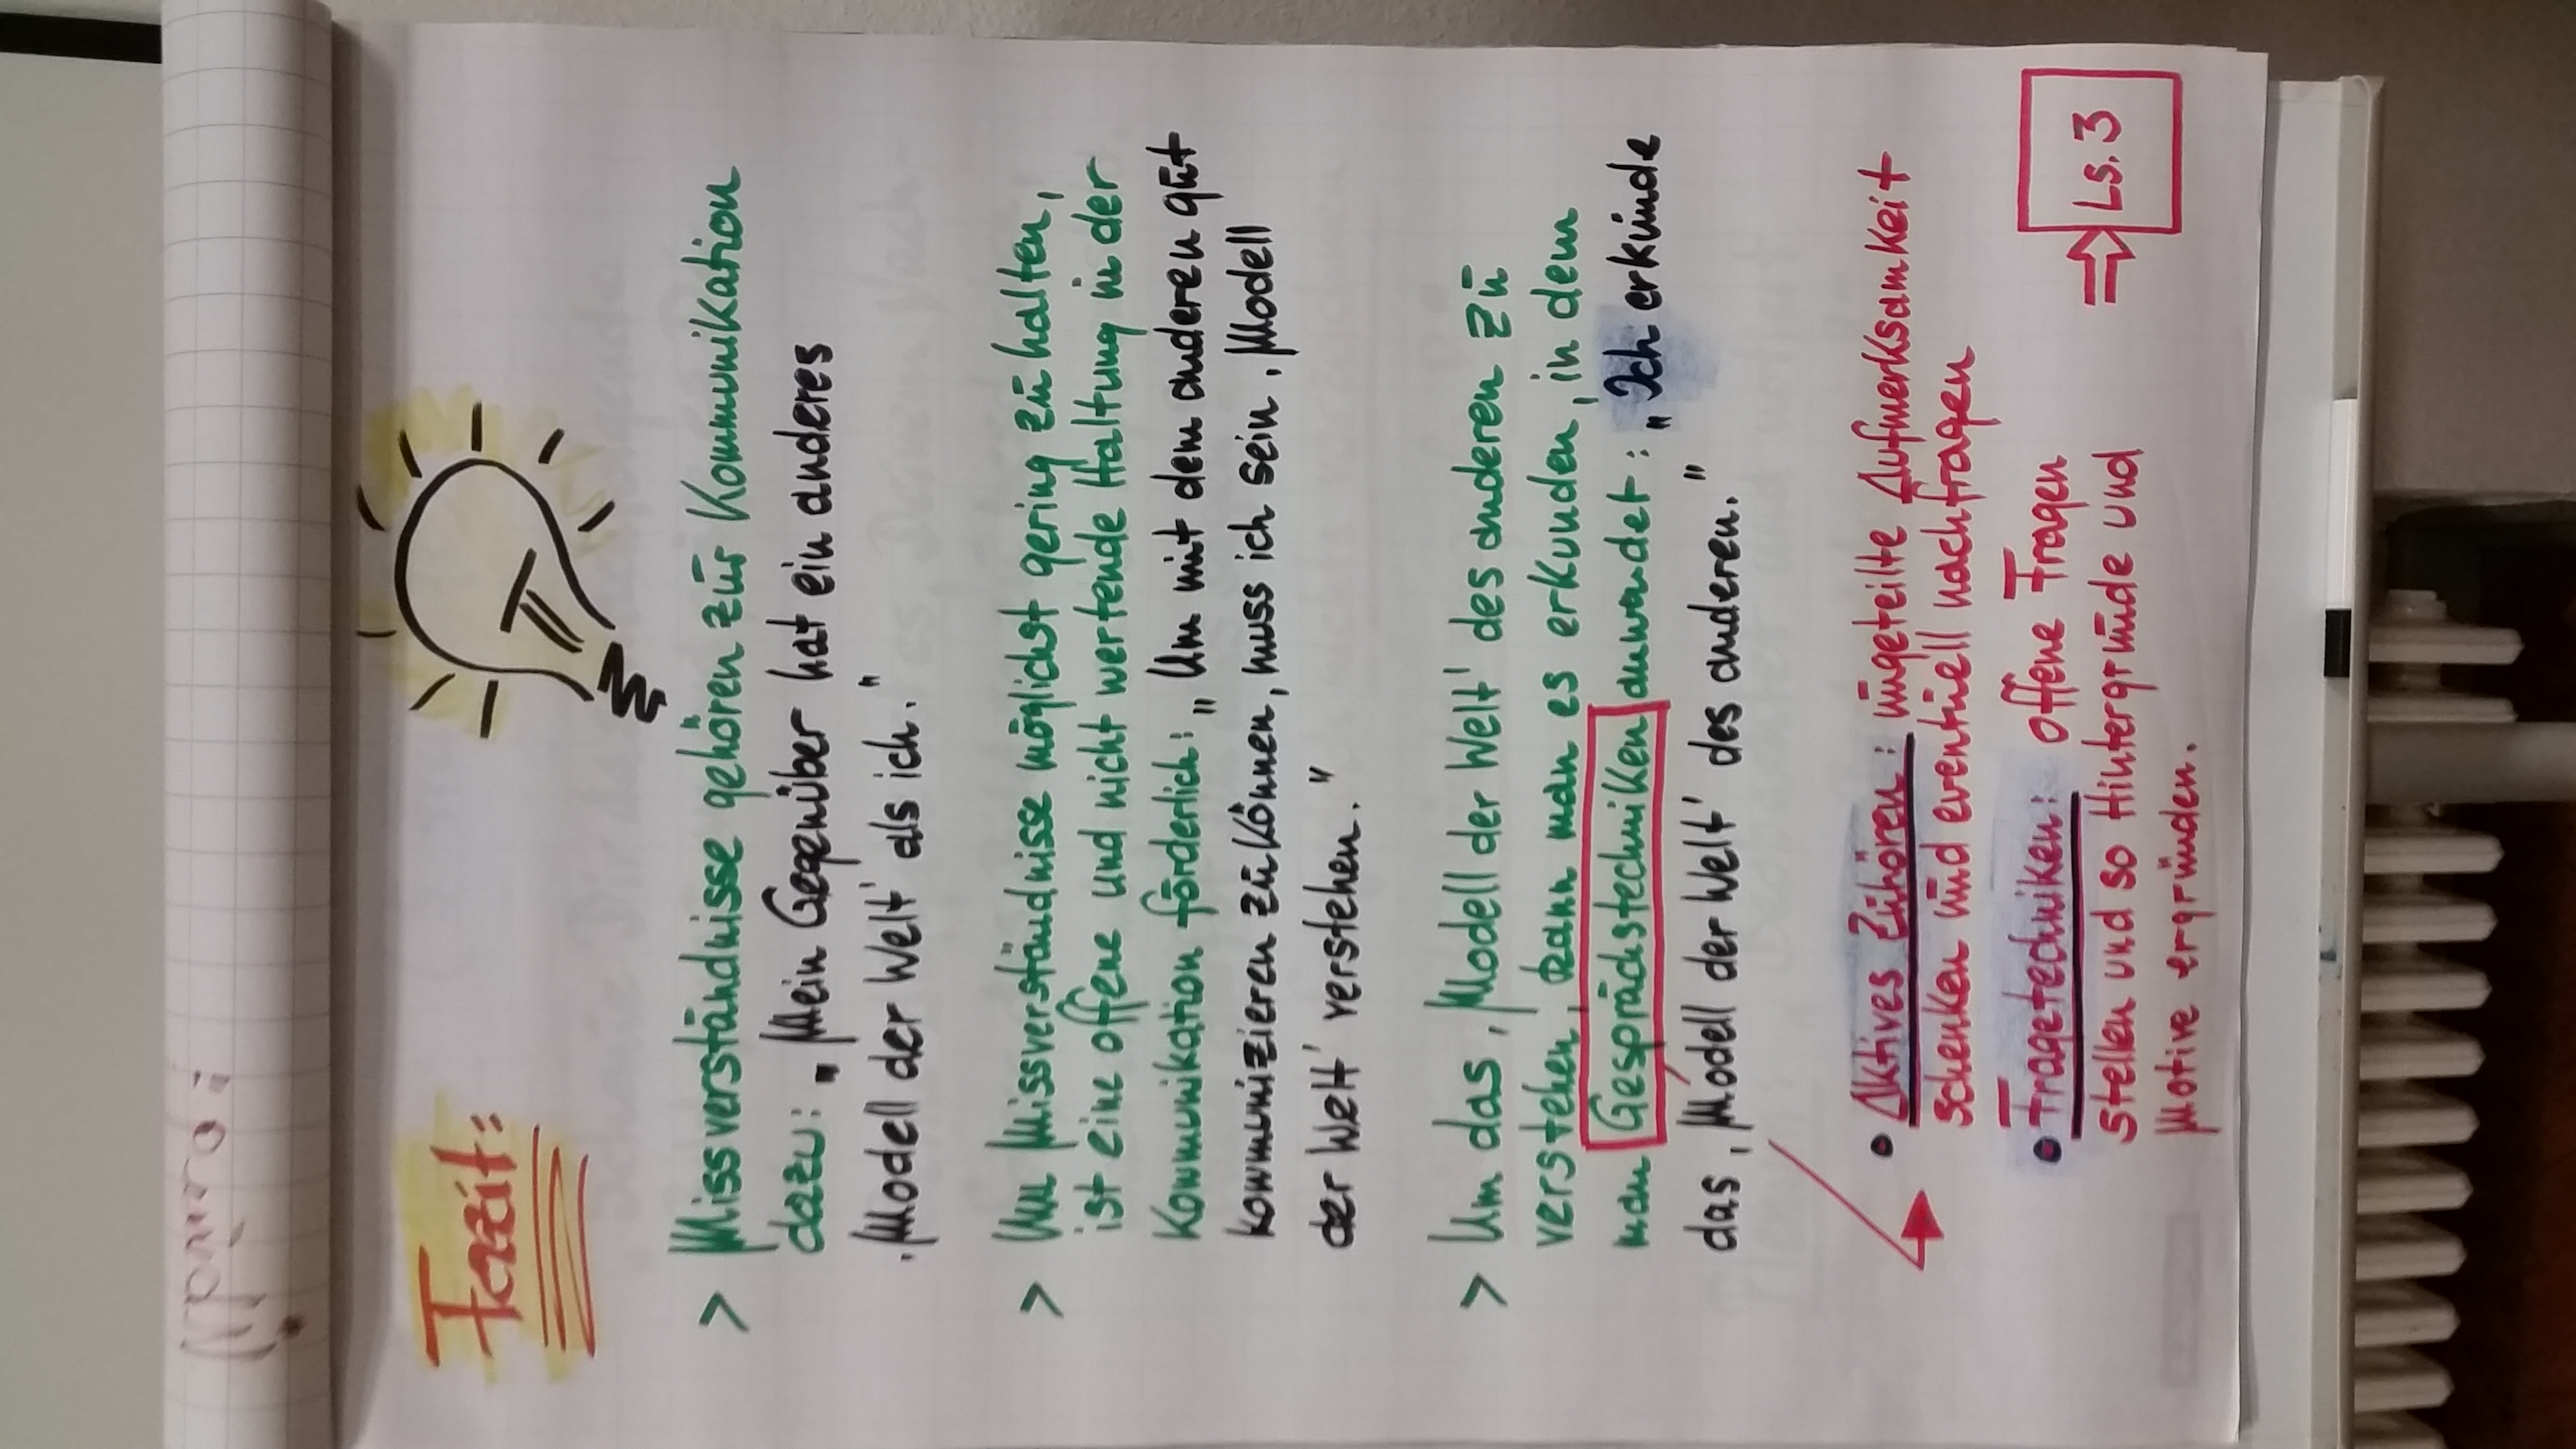 Fazit:
> Missverständnisse gehören zur Kommunikation
dazu: „Mein Gegenüber hat ein anderes
‚Modell der Welt' als ich."
> Um Missverständnisse möglichst gering zu halten,
ist eine offene und nicht wertende Haltung in der
Kommunikation förderlich: „Um mit dem anderen gut
kommunizieren zu können, muss ich sein ‚Modell
der Welt' verstehen."
> Um das ‚Modell der Welt' des anderen zu
verstehen, kann man es erkunden, in dem
man Gesprächstechniken anwendet: „Ich erkunde
das ‚Modell der Welt' des anderen."
• Aktives Zuhören: ungeteilte Aufmerksamkeit
schenken und eventuell nachfragen
• Fragetechniken: offene Fragen
stellen und so Hintergründe und
Motive ergründen.
⇒ Ls. 3